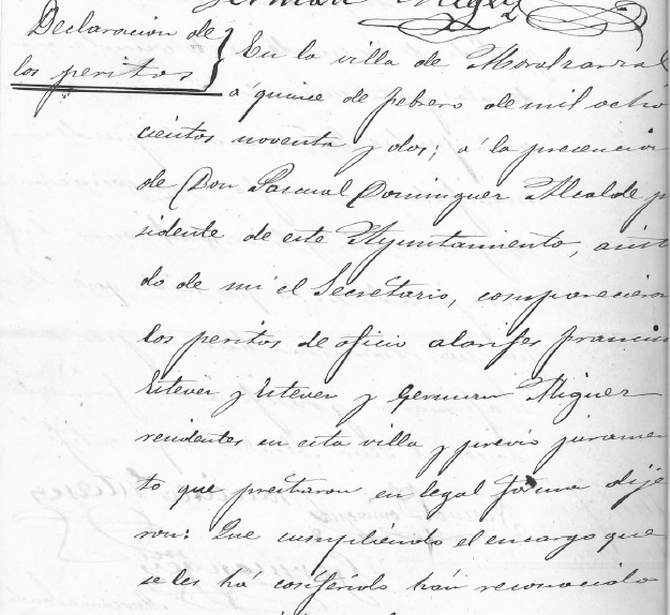 German Miguez
Declaracion de
los peritos
En la villa de Moralzarzal
a quince de febrero de mil ocho
cientos noventa y dos; á la presencia
de Don Pascual Dominguez Alcalde p
sidente de este Ayuntamiento, asisti
do de mi el Secretario, comparecieron
los peritos de oficio alarifes Francisco
Estevez y Estevez y German Miguez
residentes en esta villa y previo juramen
to que prestaron en legal forma dije
ron: Que cumpliendo el encargo que
se les há conferido hán reconocido